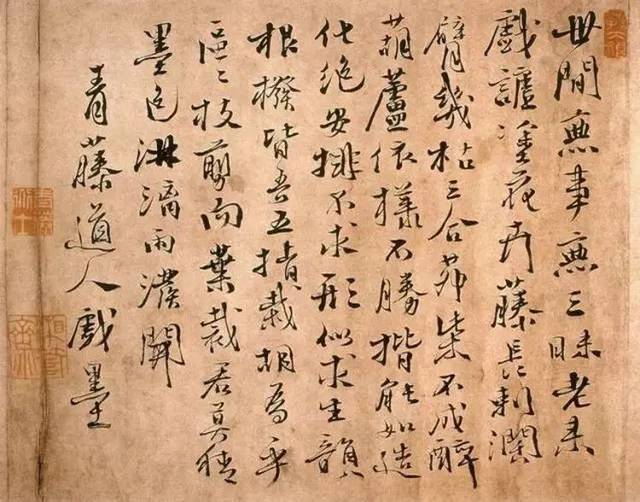 世間無事無三昧老来
戲謔塗花卉藤長刺濶
臂幾枯三合茆柴不成醉
葫蘆依樣不勝揩能如造
化絶安排不求形似求生韻
根撥皆吾五指栽胡為乎
區〻枝剪而葉裁君莫猜
墨色淋漓雨潑開
青藤道人戲墨